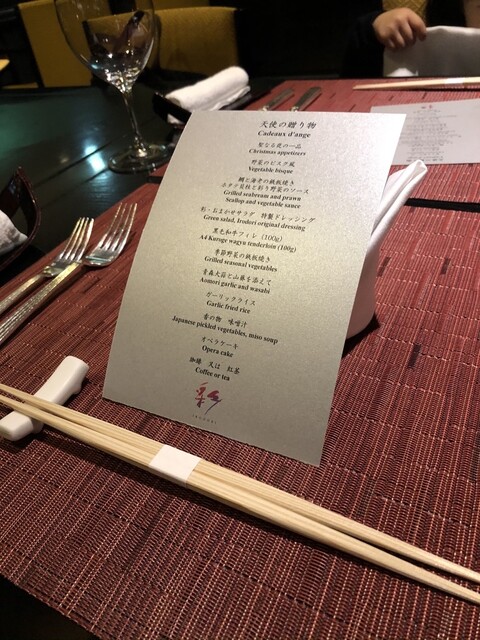 天使の贈り物
Cadeaux d'ange
聖なる夜の一品
Christmas appetizers
野菜のビスク風
Vegetable bisque
鯛と海老の鉄板焼き
ホタテ貝柱と彩り野菜のソース
Grilled seabream and prawn
Scallop and vegetable sauce
彩・おまかせサラダ 特製ドレッシング
Green salad, Irodori original dressing
黒毛和牛フィレ (100g)
A4 Kuroge wagyu tenderloin (100g)
季節野菜の鉄板焼き
Grilled seasonal vegetables
青森大蒜と山葵を添えて
Aomori garlic and wasabi
ガーリックライス
Garlic fried rice
香の物 味噌汁
Japanese pickled vegetables, miso soup
オペラケーキ
Opera cake
珈琲 又は 紅茶
Coffee or tea
彩
IRODORI